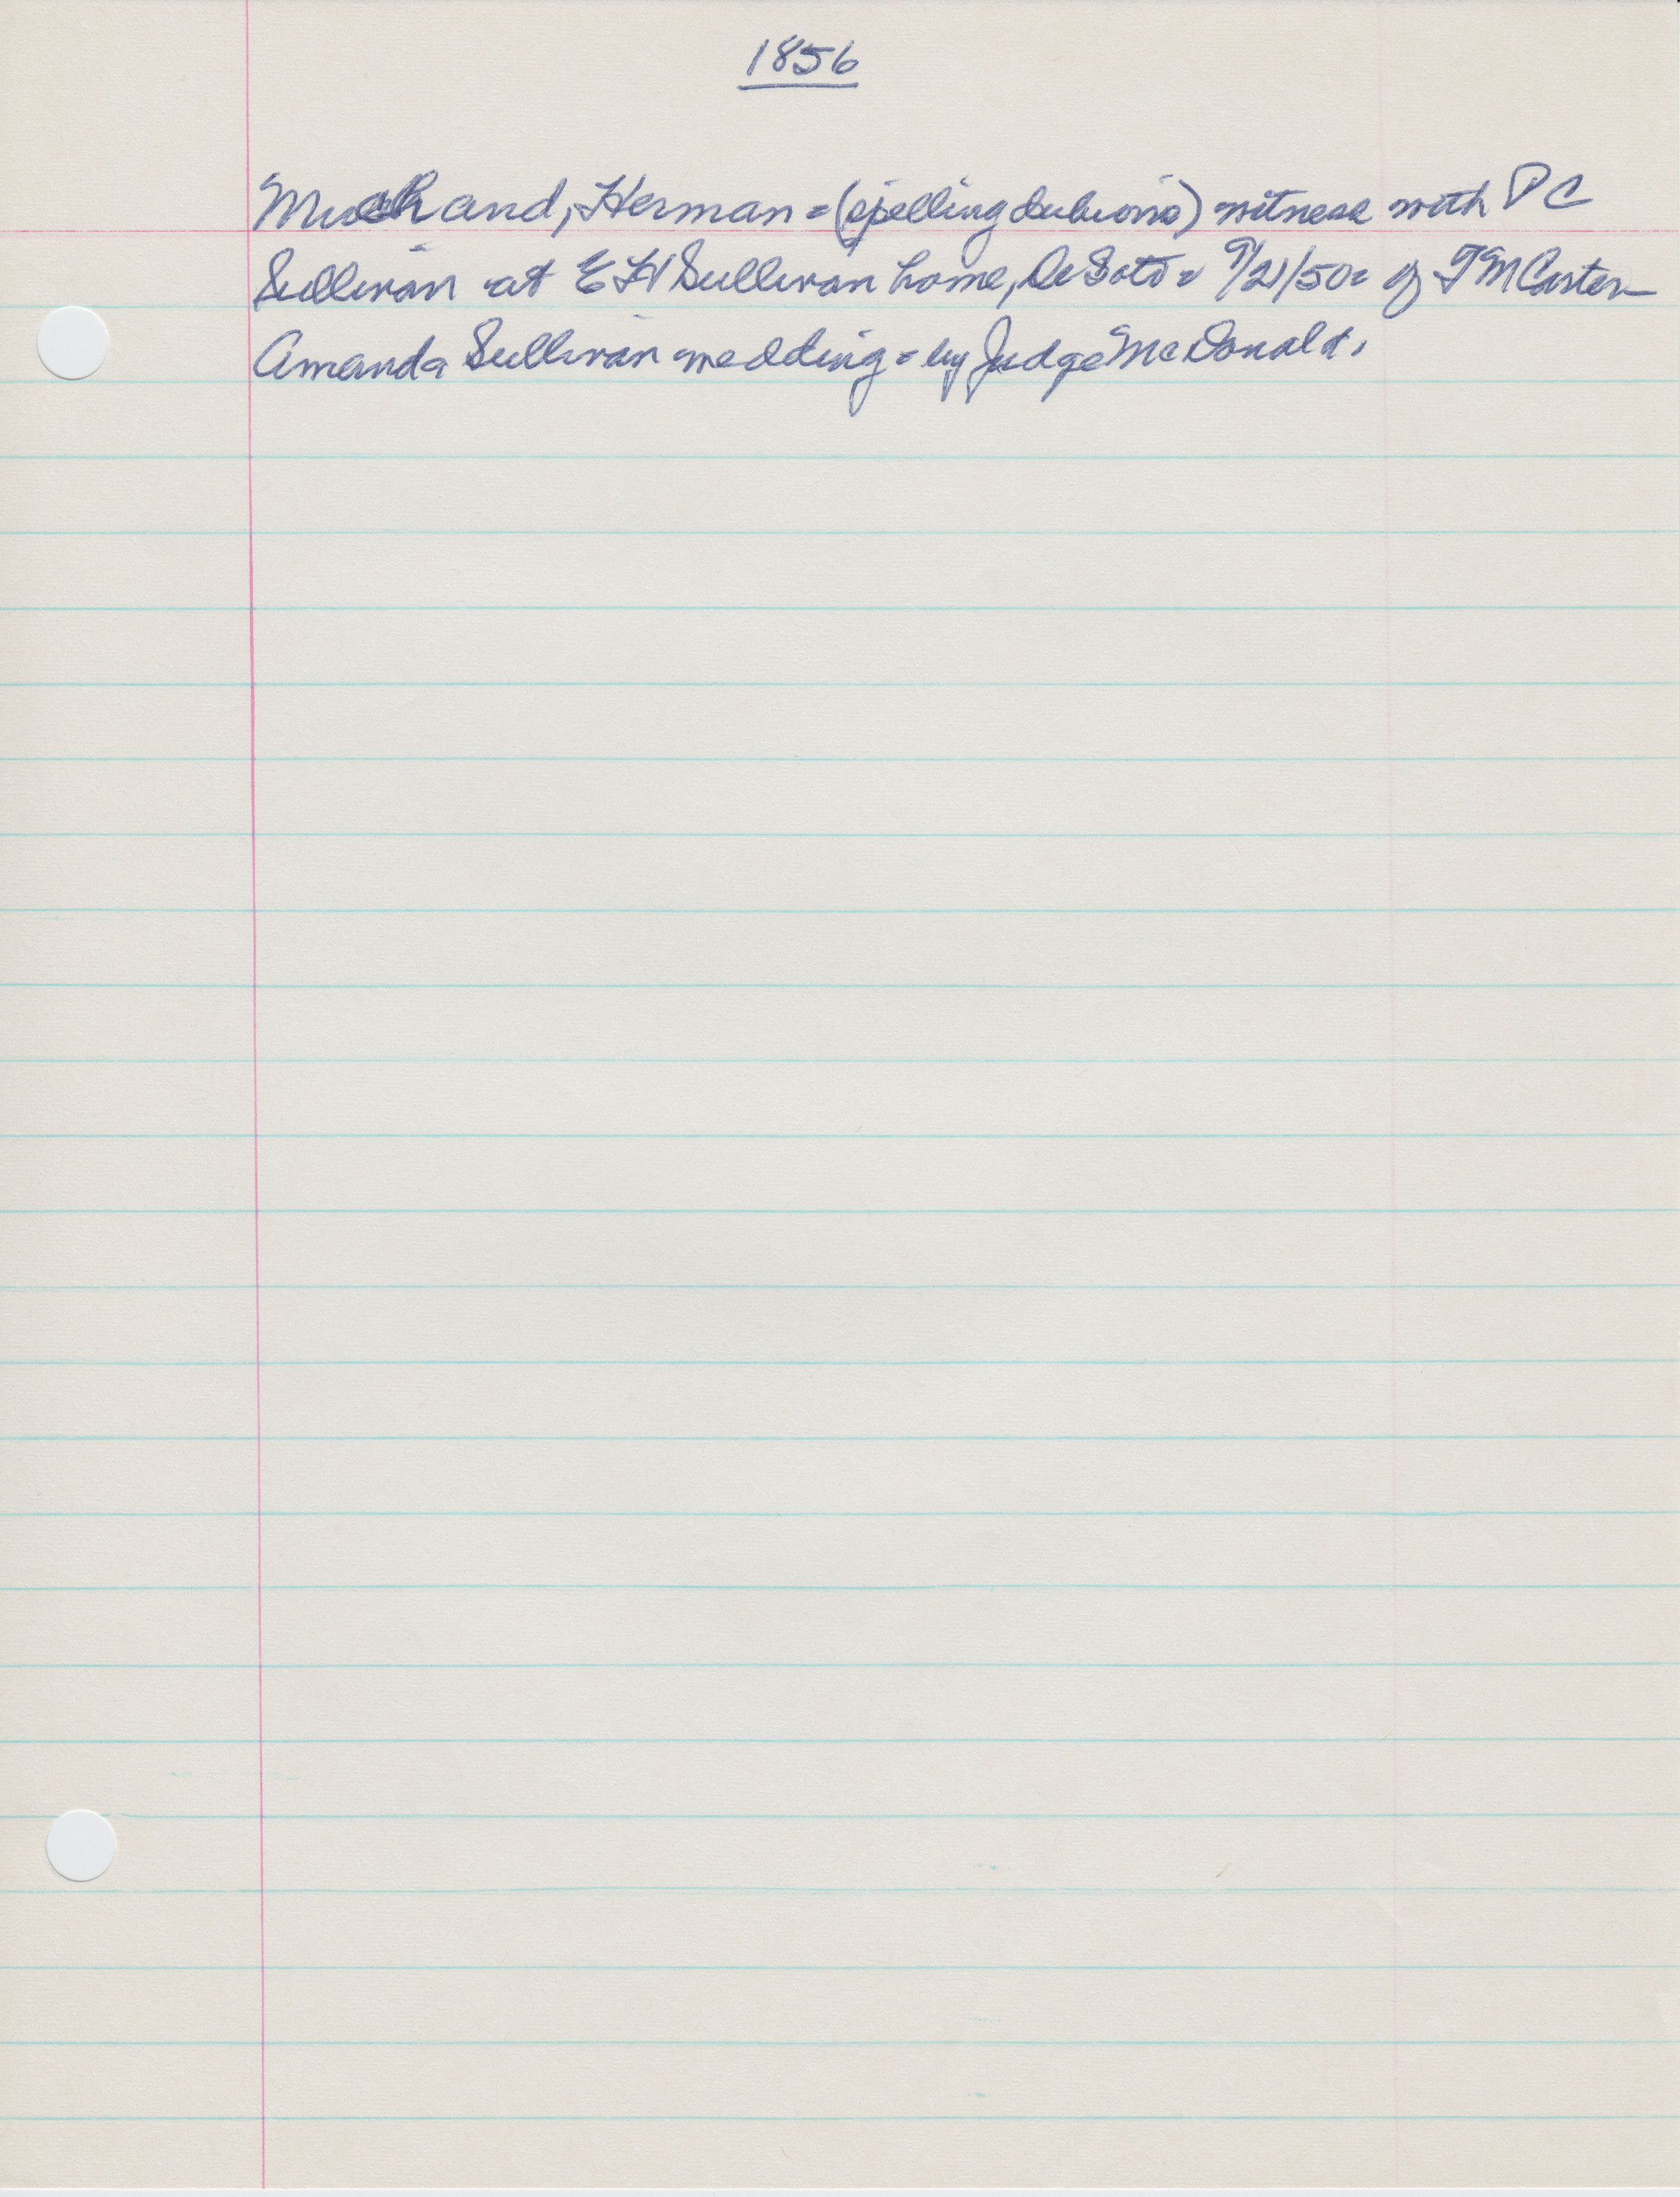 1856
Muchand, Herman = (spelling dubious) witness with P C
Sullivan at E H Sullivan home, De Soto = 9/21/50 = of T M Carter -
Amanda Sullivan wedding = by Judge McDonald.